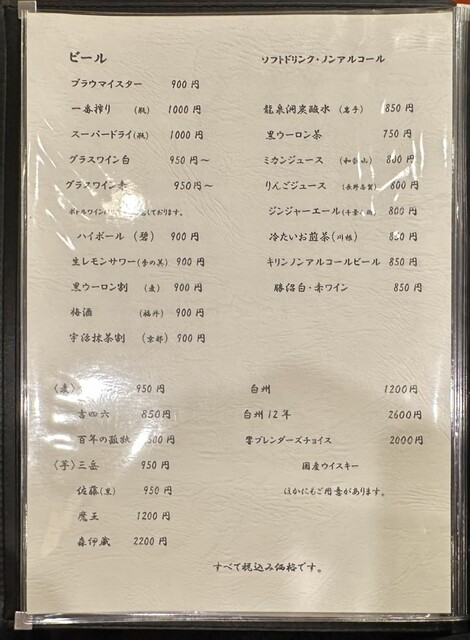 ビール
ブラウマイスター 900円
一番搾り (瓶) 1000円
スーパードライ(瓶) 1000円
グラスワイン白 950円～
グラスワイン赤 950円～
ボトルワイン しております。
ハイボール (碧) 900円
生レモンサワー(季の美) 900円
黒ウーロン割 (麦) 900円
梅酒 (福井) 900円
宇治抹茶割 (京都) 900円
〈麦〉 950円
吉四六 850円
百年の孤独 500円
〈芋〉三岳 950円
佐藤(黒) 950円
魔王 1200円
森伊蔵 2200円
ソフトドリンク・ノンアルコール
龍泉洞炭酸水 (岩手) 850円
黒ウーロン茶 750円
ミカンジュース (和歌山) 800円
りんごジュース 800円
ジンジャーエール 800円
冷たいお煎茶(川根) 円
キリンノンアルコールビール 850円
勝沼白・赤ワイン 850円
白州 1200円
白州12年 2600円
響ブレンダーズチョイス 2000円
国産ウイスキー
ほかにもご用意があります。
すべて税込み価格です。